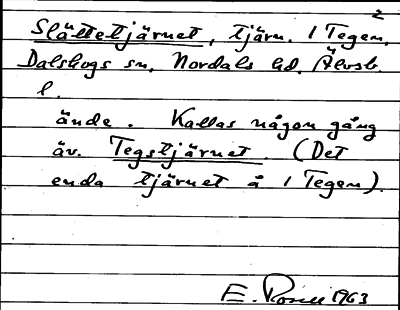 2
Slättetjärnet, tjärn. 1 Tegen,
Dalskogs sn, Nordals hd. Älvsb.
l.
ände. Kallas någon gång
äv. Tegstjärnet. (Det
enda tjärnet å 1 Tegen).
E. Rosell 1963